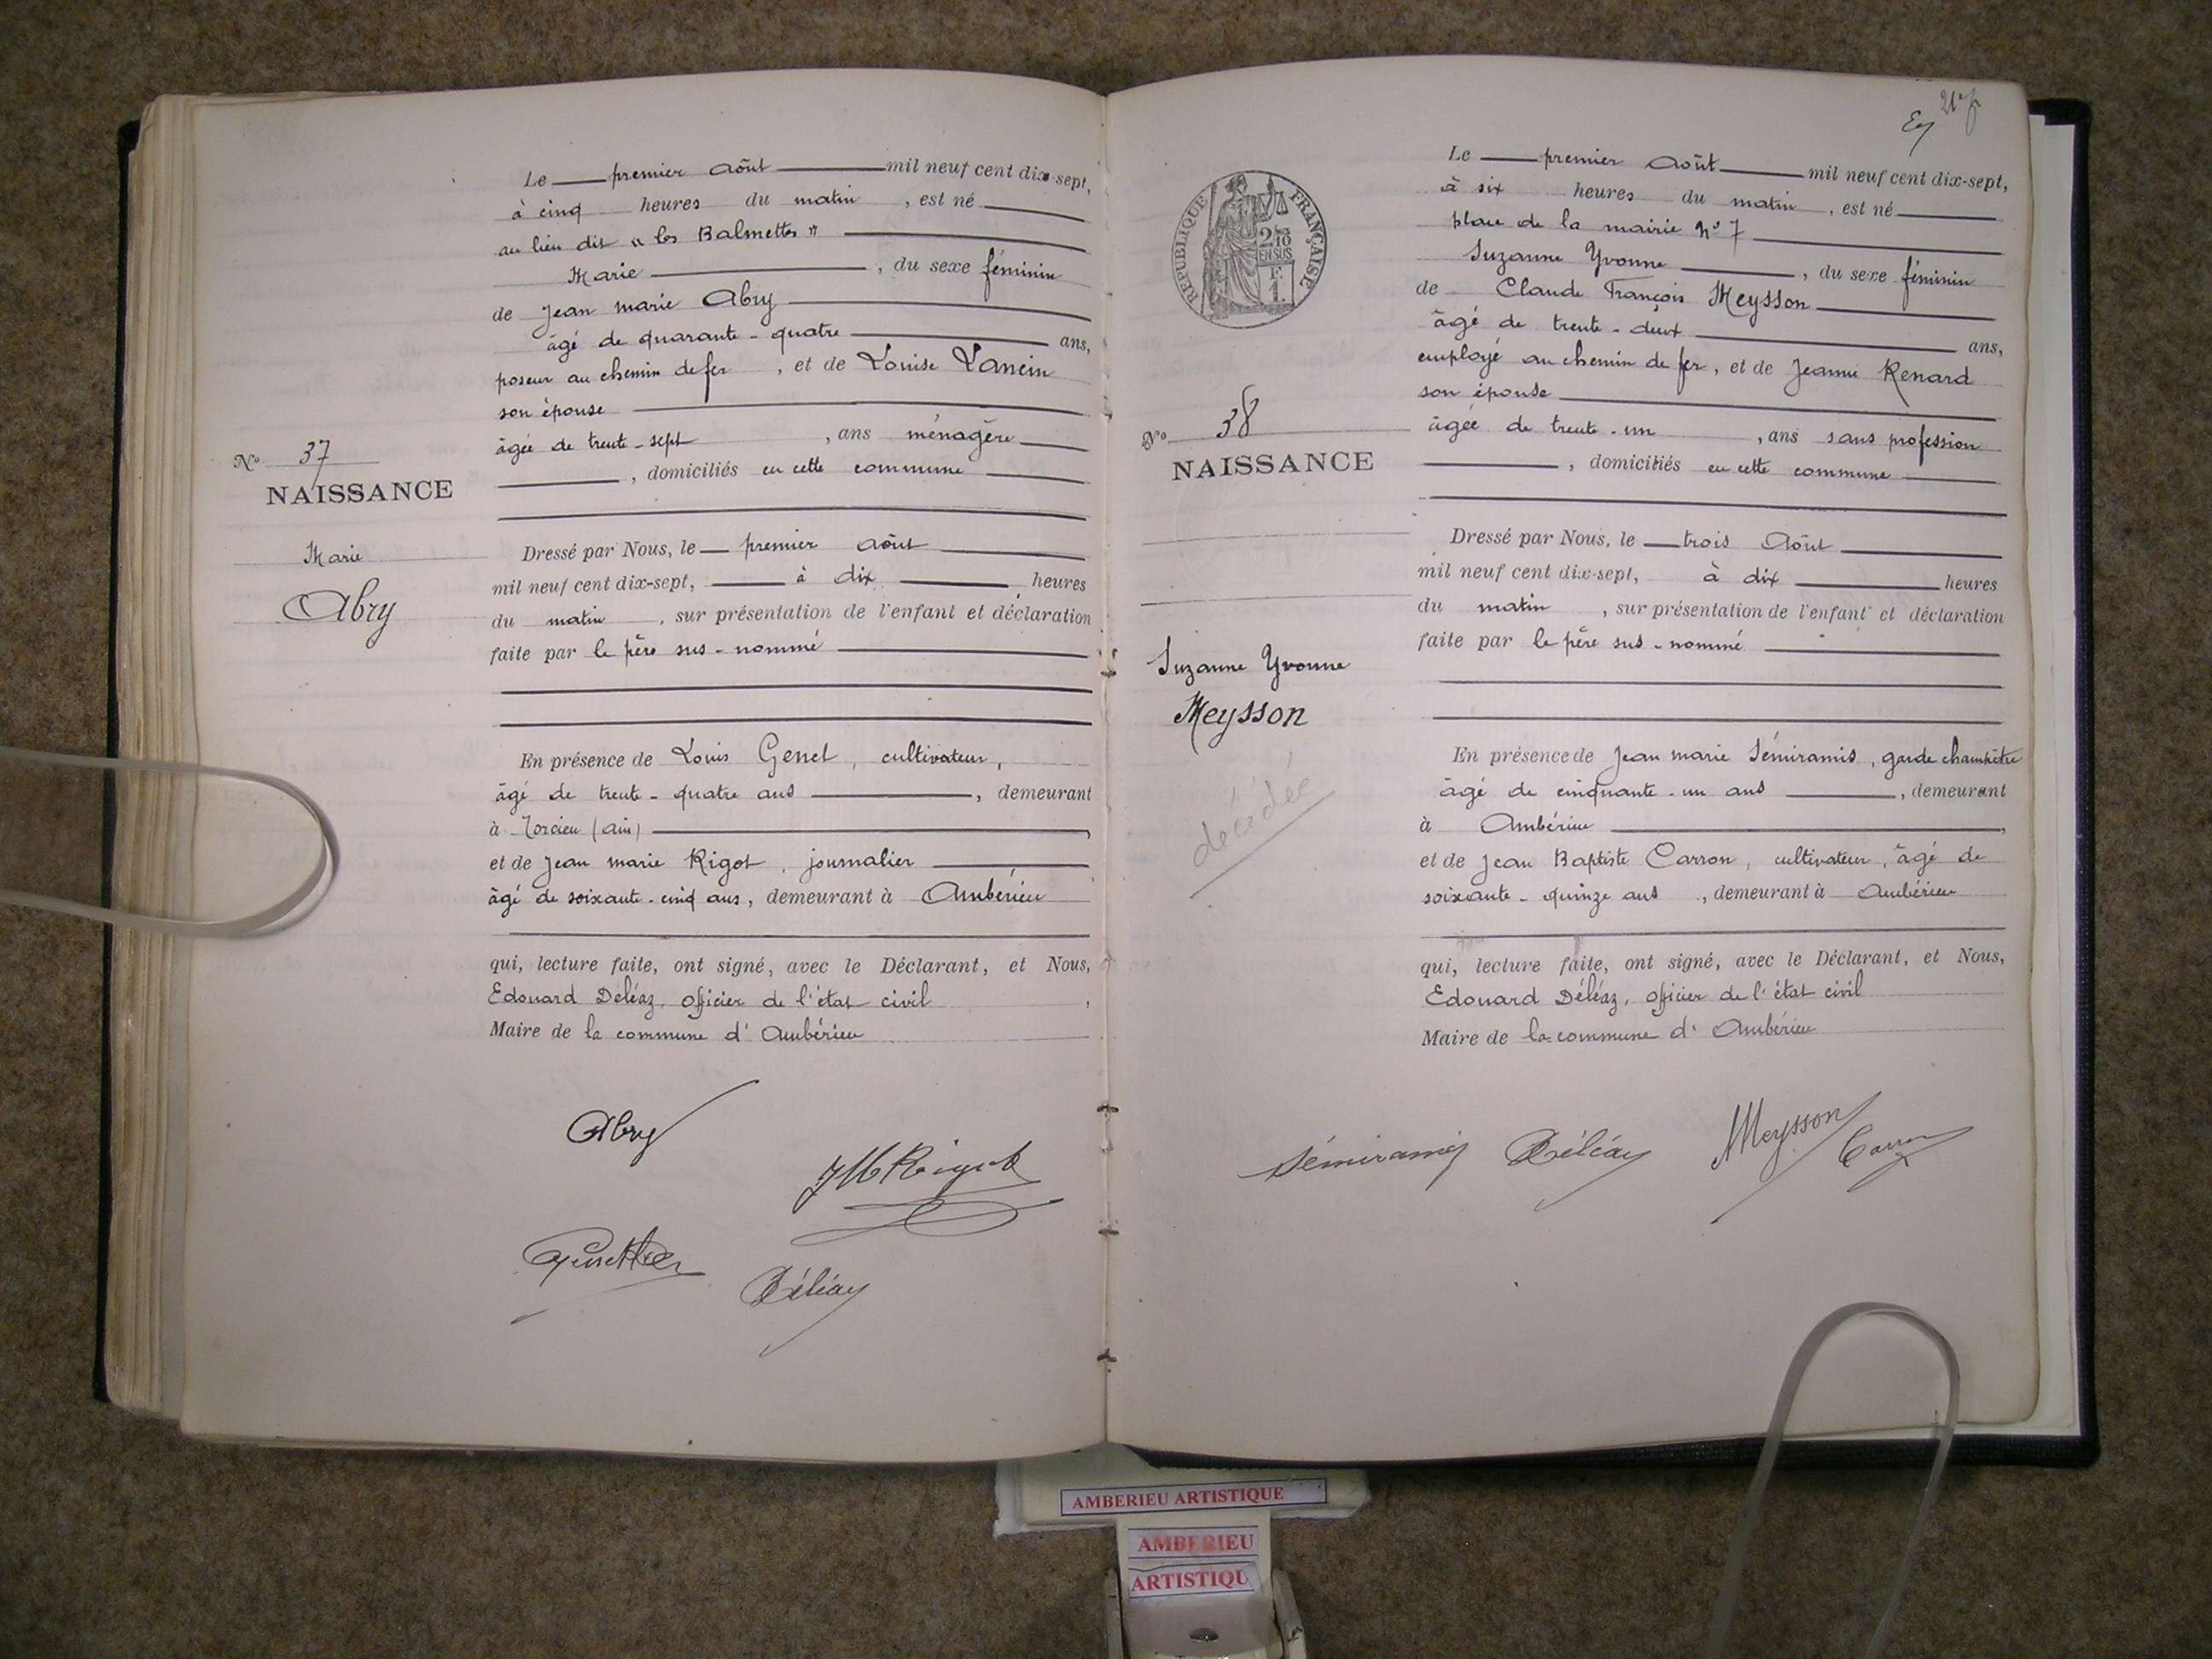 Le premier Août mil neuf cent dix-sept,
à cinq heures du matin, est né
au lieu dit « les Balmettes »
Marie, du sexe féminin
de Jean marie Abry
âgé de quarante-quatre ans,
poseur au chemin de fer, et de Louise Lancin
son épouse
âgée de trente-sept, ans ménagère
, domiciliés en cette commune
No 37
NAISSANCE
Marie
Abry
Dressé par Nous, le premier août
mil neuf cent dix-sept, à dix heures
du matin, sur présentation de l'enfant et déclaration
faite par le père sus-nommé
En présence de Louis Genet, cultivateur,
âgé de trente-quatre ans, demeurant
à Torcieu (ain),
et de Jean marie Rigot, journalier
âgé de soixante-cinq ans, demeurant à Ambérieu
qui, lecture faite, ont signé, avec le Déclarant, et Nous,
Edouard Déléaz, officier de l'état civil,
Maire de la commune d'Ambérieu
Abry
JM Rigot
Déléaz
21e f
REPUBLIQUE FRANÇAISE
2/10
EN SUS
F.
1.
Le premier Août mil neuf cent dix-sept,
à six heures du matin, est né
place de la mairie No 7
Suzanne Yvonne, du sexe féminin
de Claude François Meysson
âgé de trente-deux ans,
employé au chemin de fer, et de Jeanne Renard
son épouse
âgée de trente-un, ans sans profession
, domiciliés en cette commune
No 38
NAISSANCE
Suzanne Yvonne
Meysson
décédée
Dressé par Nous, le trois Août
mil neuf cent dix-sept, à dix heures
du matin, sur présentation de l'enfant et déclaration
faite par le père sus-nommé
En présence de Jean marie Sémiramis, garde champêtre
âgé de cinquante-un ans, demeurant
à Ambérieu,
et de Jean Baptiste Carron, cultivateur, âgé de
soixante-quinze ans, demeurant à Ambérieu
qui, lecture faite, ont signé, avec le Déclarant, et Nous,
Edouard Déléaz, officier de l'état civil
Maire de la commune d'Ambérieu
Sémiramis Déléaz Meysson Carron
AMBERIEU ARTISTIQUE
AMBERIEU
ARTISTIQU